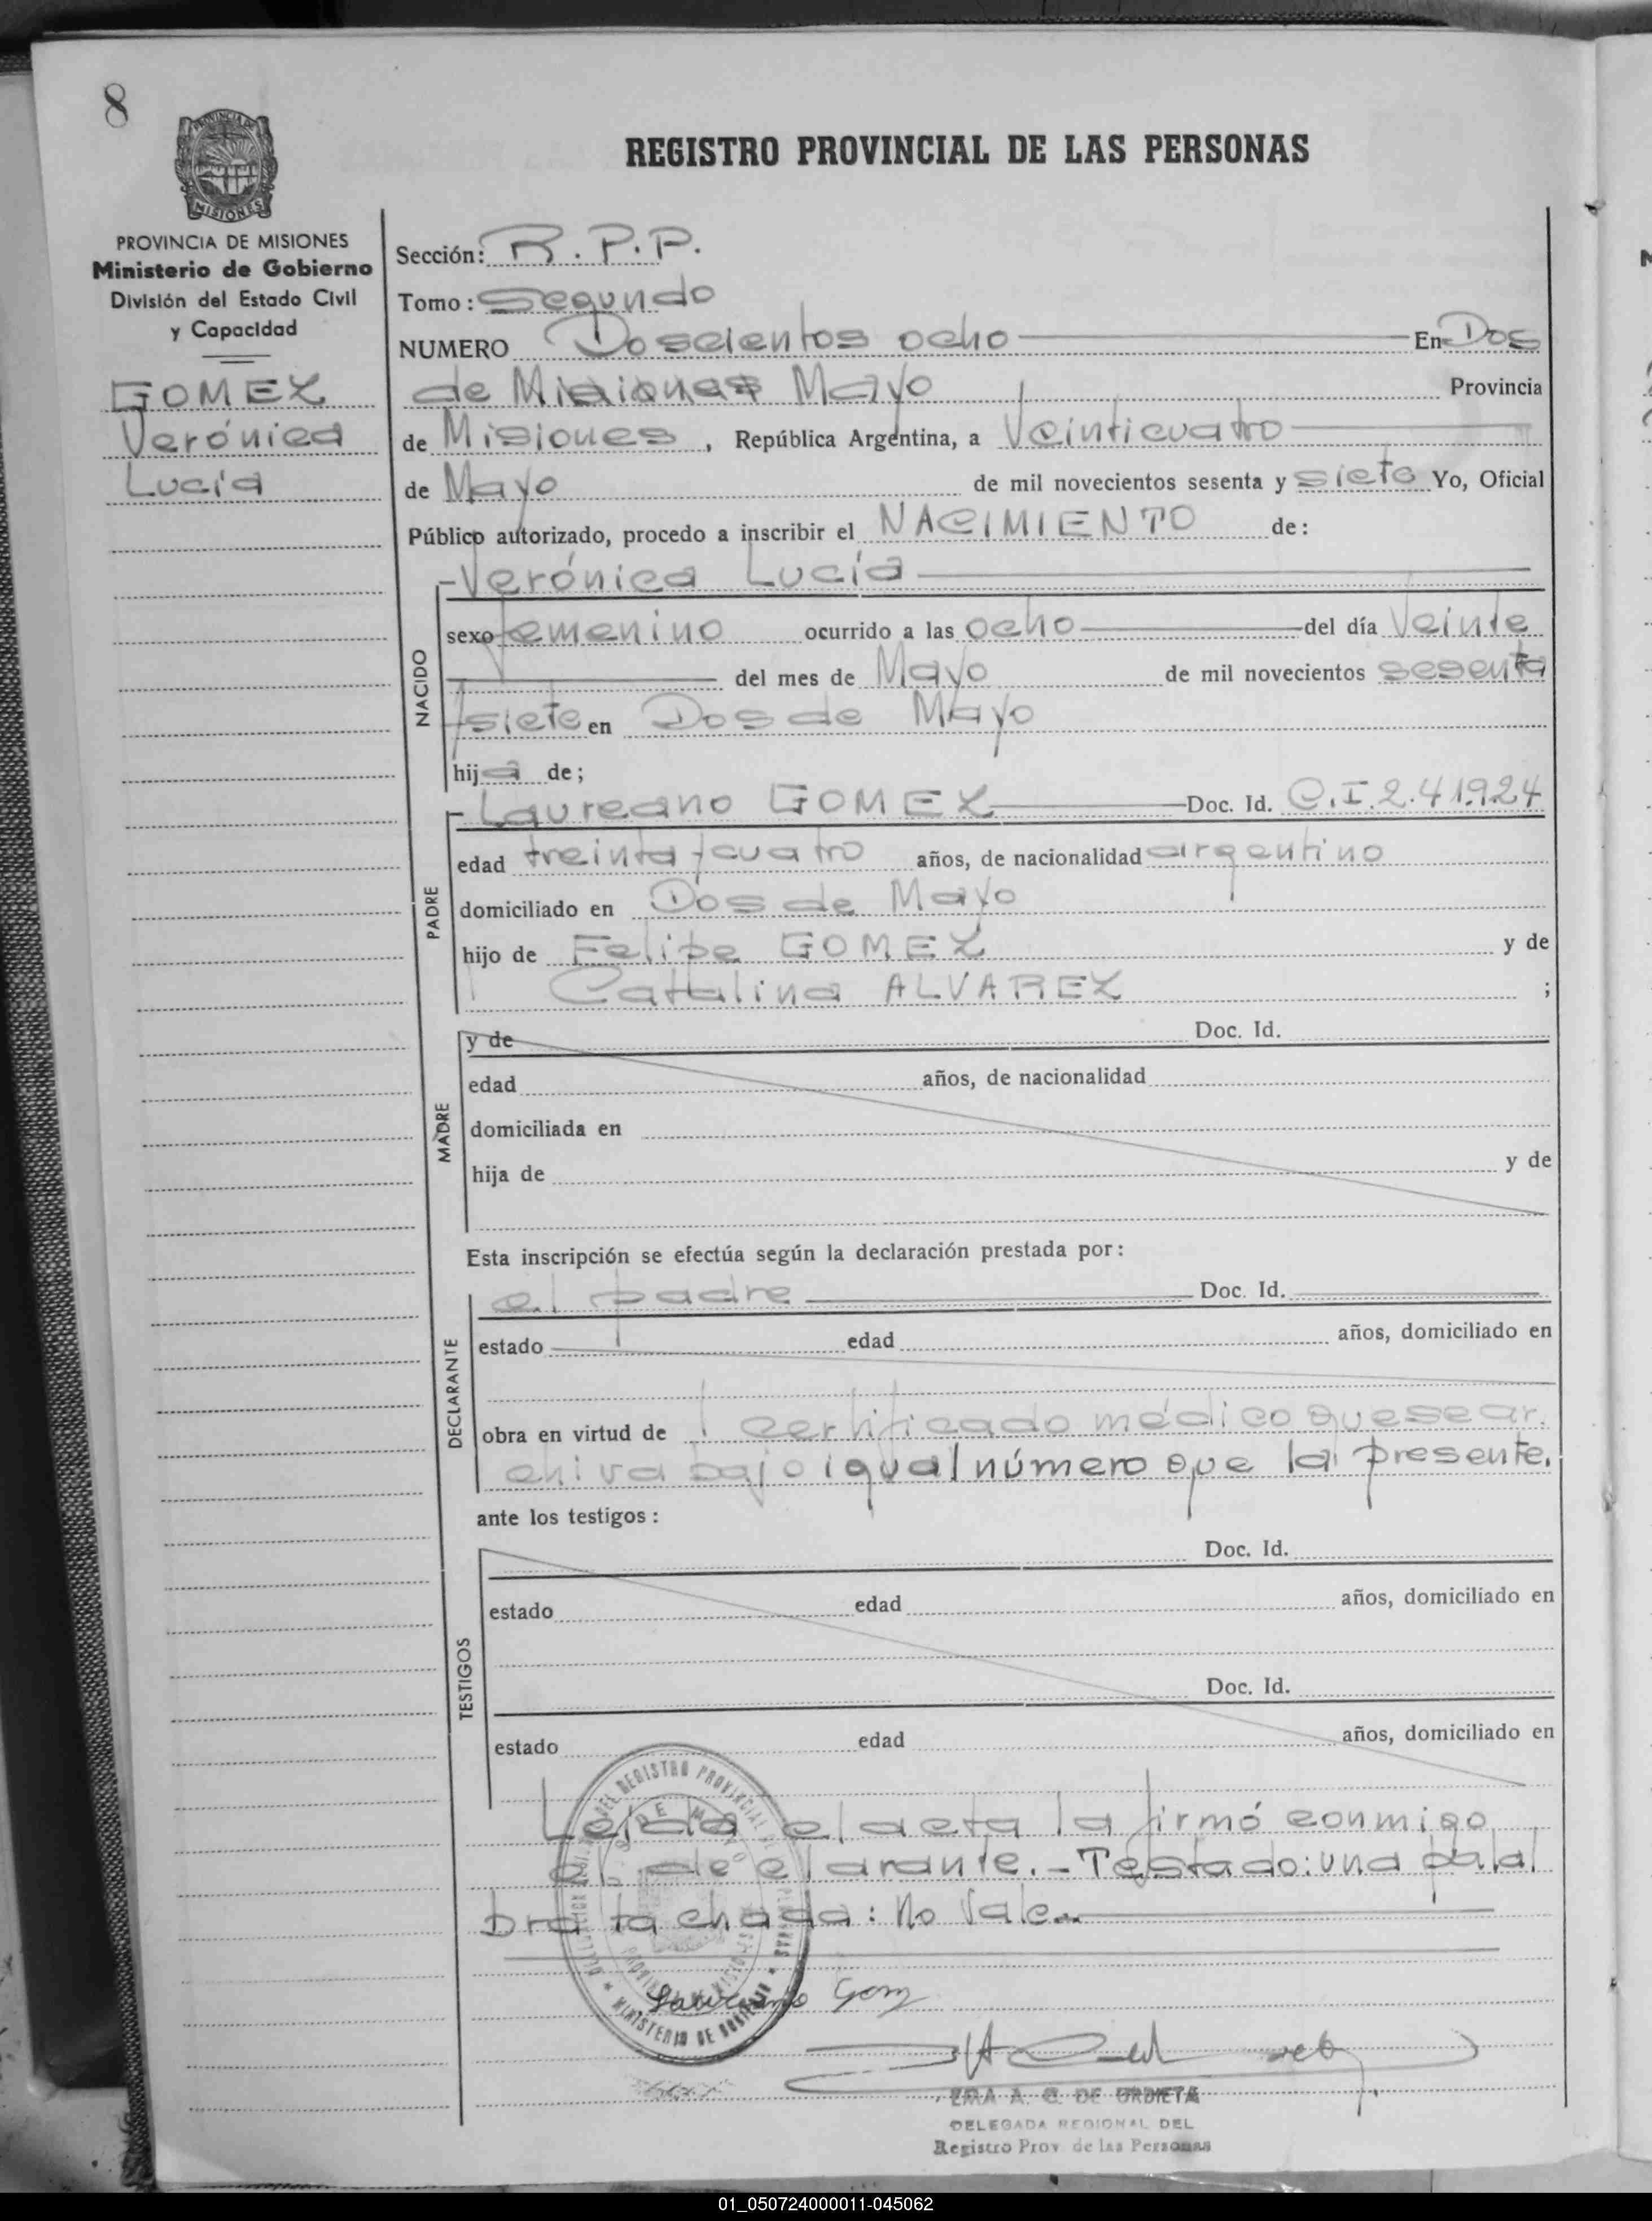 8
PROVINCIA DE MISIONES
Ministerio de Gobierno
División del Estado Civil
y Capacidad
GOMEZ
Verónica
Lucía
REGISTRO PROVINCIAL DE LAS PERSONAS
Sección: R.P.P.
Tomo: Segundo
NUMERO Doscientos ocho En Dos
de Misiones Mayo Provincia
de Misiones, República Argentina, a Veinticuatro
de Mayo de mil novecientos sesenta y siete Yo, Oficial
Público autorizado, procedo a inscribir el NACIMIENTO de:
NACIDO
-Verónica Lucía
sexo femenino ocurrido a las ocho del día Veinte
del mes de Mayo de mil novecientos sesenta
y siete en Dos de Mayo
hija de;
PADRE
-Laureano GOMEZ Doc. Id. C.I.2.41924
edad treinta y cuatro años, de nacionalidad argentino
domiciliado en Dos de Mayo
hijo de Felipe GOMEZ y de
Catalina ALVAREZ ;
MADRE
y de Doc. Id.
edad años, de nacionalidad
domiciliada en
hija de y de
Esta inscripción se efectúa según la declaración prestada por:
DECLARANTE
el padre Doc. Id.
estado edad años, domiciliado en
obra en virtud de certificado médico que se ar.
chiva bajo igual número que la presente.
ante los testigos:
TESTIGOS
Doc. Id.
estado edad años, domiciliado en
Doc. Id.
estado edad años, domiciliado en
Leida el acta la firmó conmigo
el declarante.-Testado: una pala
bra tachada: No Vale.-
DEL REGISTRO PROVINCIAL DE
MINISTERIO DE GOBIERNO
Laureano Gom
EMA A. C. DE URDIETA
DELEGADA REGIONAL DEL
Registro Prov. de las Personas
01_050724000011-045062